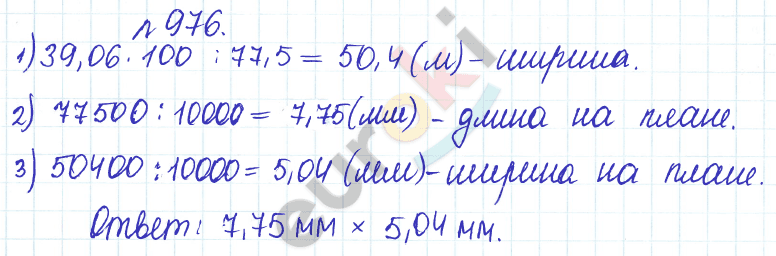 № 976.
1) 39,06 · 100 : 77,5 = 50,4 (м) - ширина.
2) 77500 : 10000 = 7,75 (мм) - длина на плане.
3) 50400 : 10000 = 5,04 (мм) - ширина на плане.
Ответ: 7,75 мм × 5,04 мм.
euroki